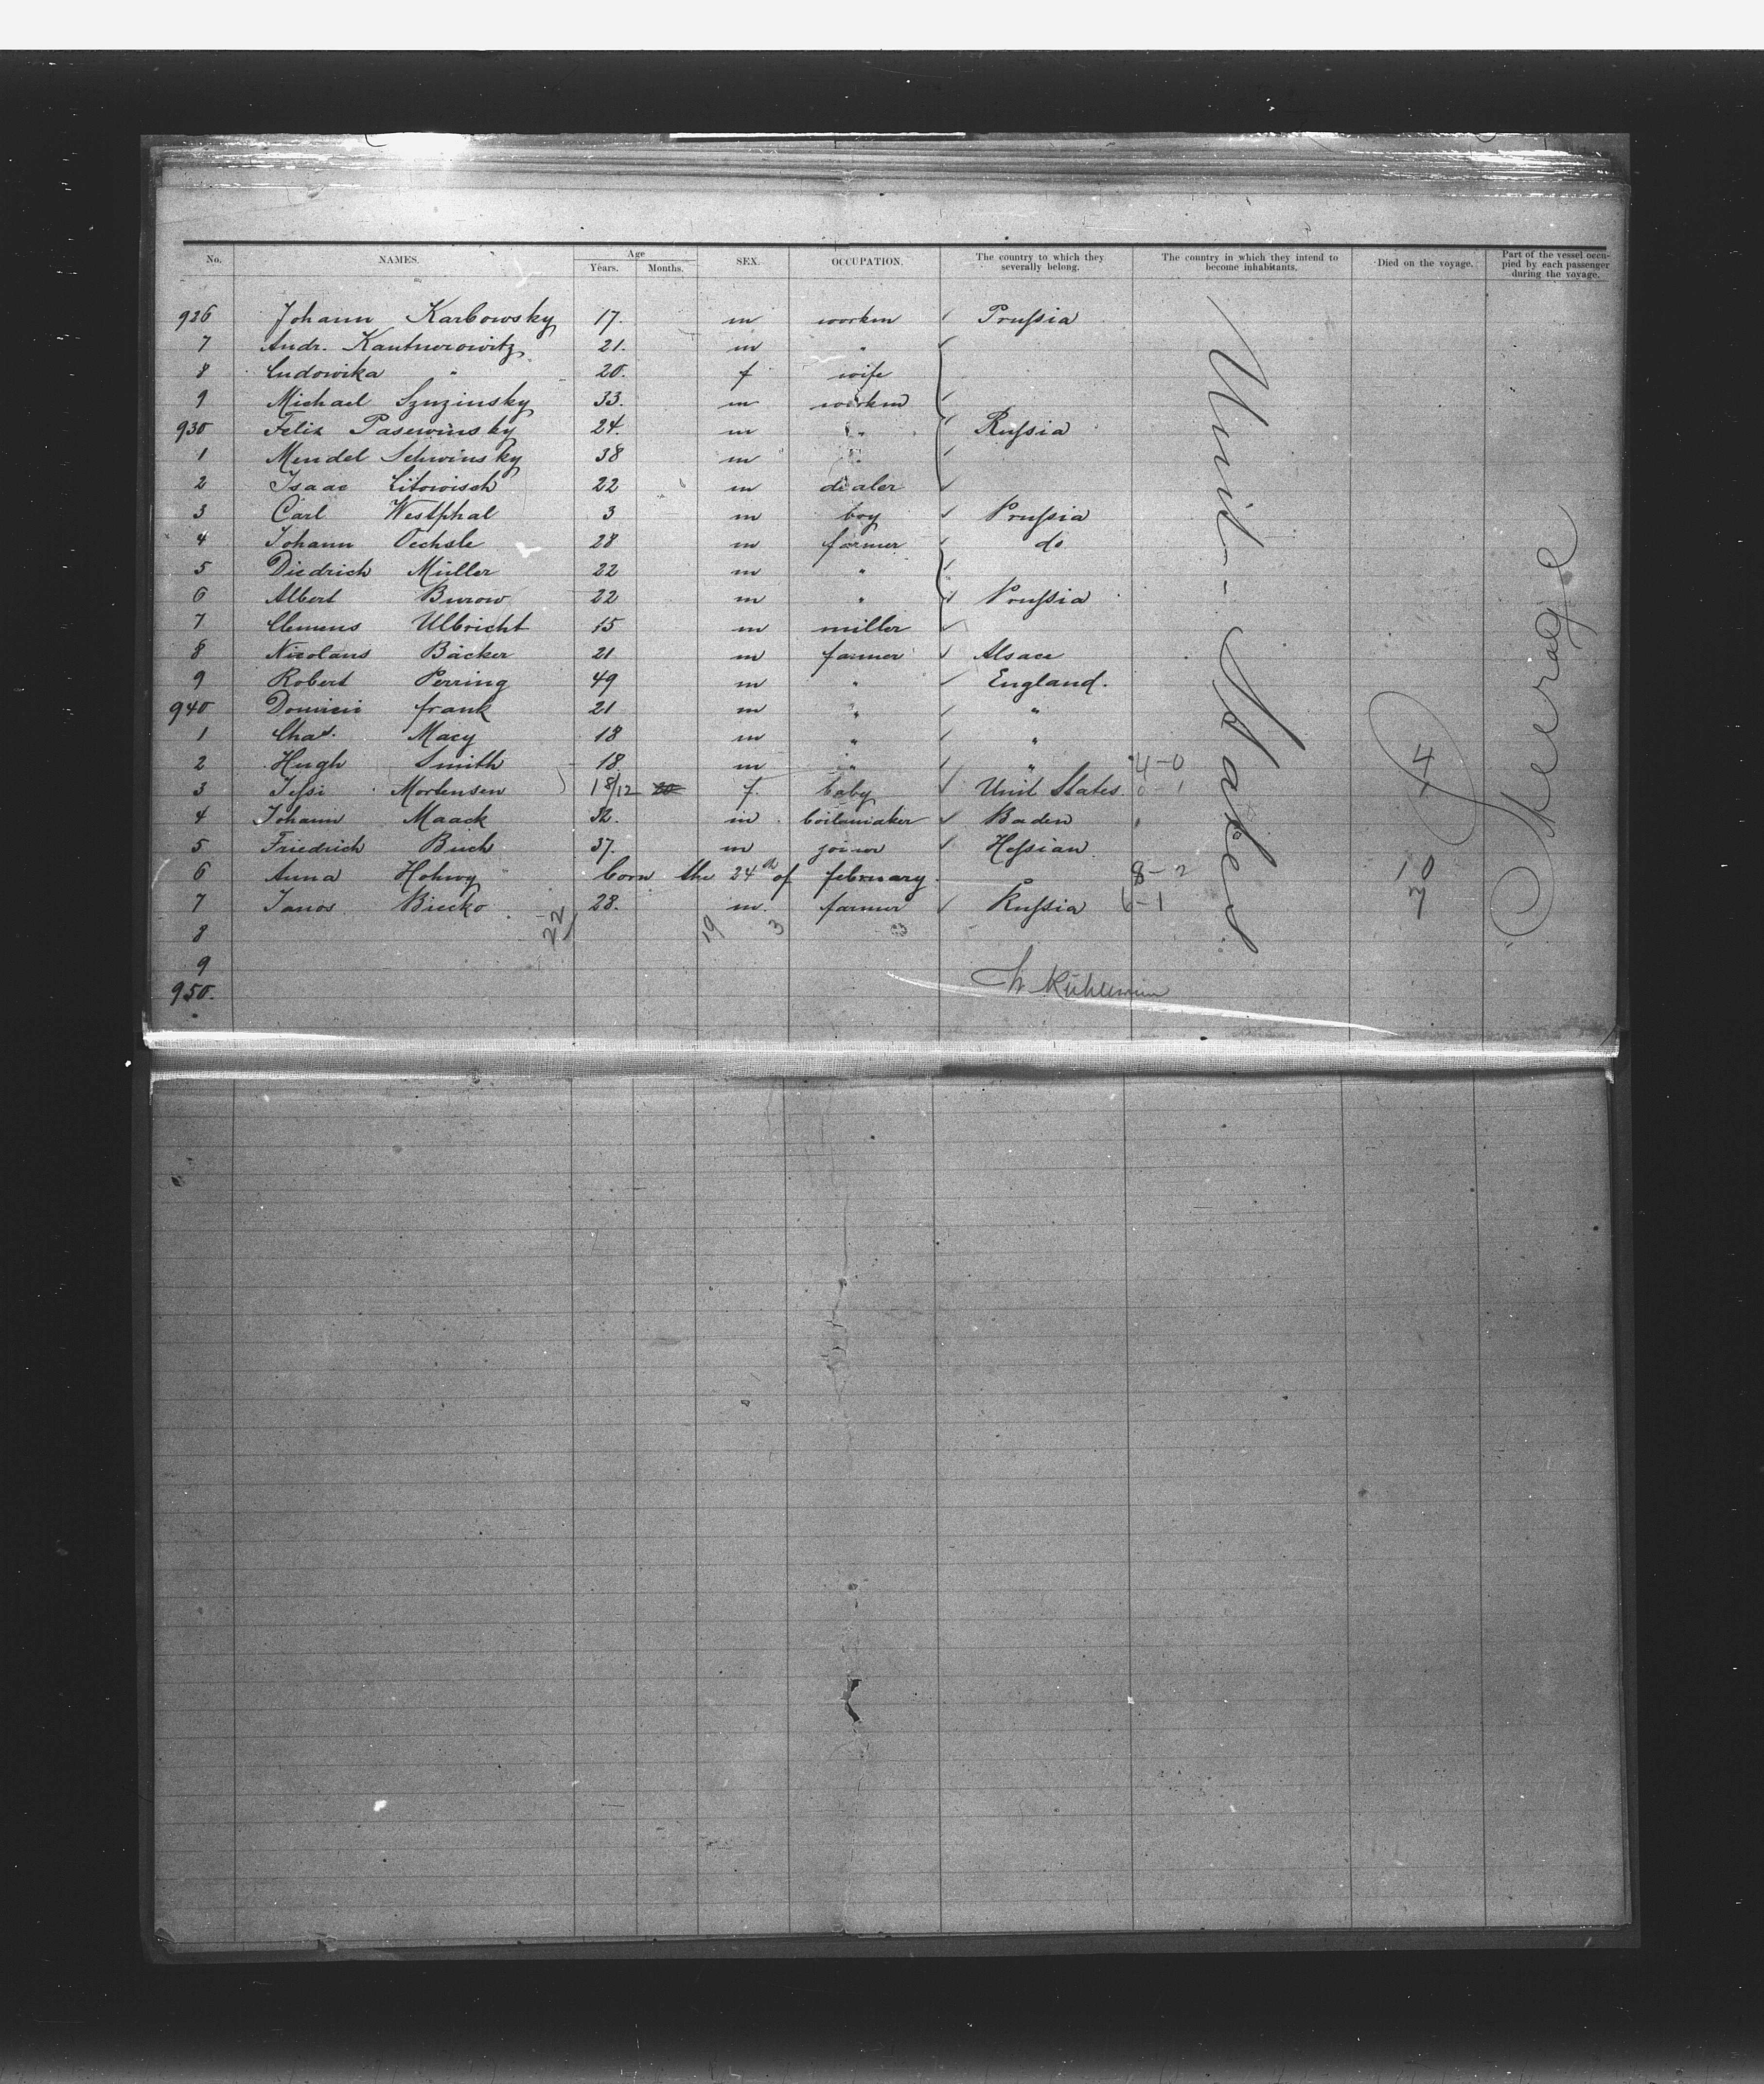 No. NAMES. Age Years. Months. SEX. OCCUPATION. The country to which they severally belong. The country in which they intend to become inhabitants. Died on the voyage. Part of the vessel occupied by each passenger during the voyage.
926 Johann Karbowsky 17. m workm Prussia
7 Andr. Kantnerowitz 21. m "
8 Ludowika " 20. f wife
9 Michael Szuzinsky 33. m workm
930 Felix Pasewinsky 24. m " Russia
1 Mendel Schwinsky 38 m "
2 Isaac Litowisch 22 m dealer
3 Carl Westphal 3 m boy Prussia
4 Johann Oechsle 28 m farmer do
5 Diedrich Müller 22 m "
6 Albert Burow 22 m " Prussia
7 Clemens Ulbricht 15 m miller
8 Nicolaus Bäcker 21 m farmer Alsace
9 Robert Perring 49 m " England.
940 frank 21 m " "
1 Chas. Macy 18 m " "
2 Hugh Smith 18. m " " 4-0 4
3 Jessi Mortensen 18/12 f. baby Unit States 0-1 1
4 Johann Maack 32. m boilamaker Baden
5 Friedrich Buch 37. m joiner Hessian
6 Anna Hohwy born the 24th of february. 8-2 10
7 Janos Biecko 28. m. farmer Russia 6-1 7
8 22 19 3
9
950.
Unit-States.
Steerage